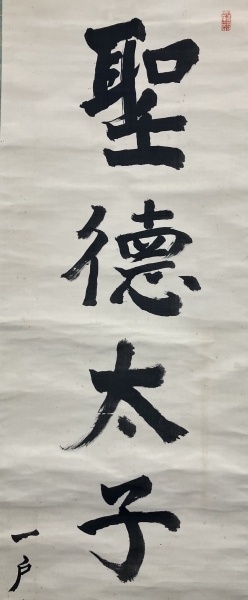 聖德太子
一戶